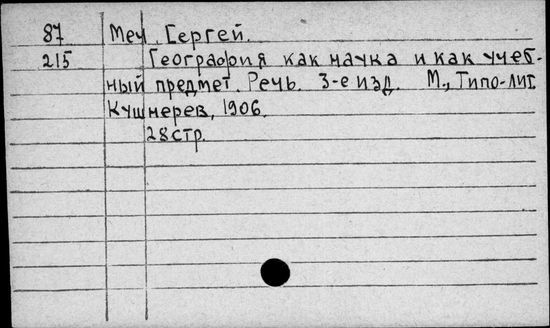 87 Меч Сергей.
215 География как наука и как учеб-
ный предмет. Речь. 3-е изд. М., Типо-лит.
Кушнерев, 1906.
28 стр.